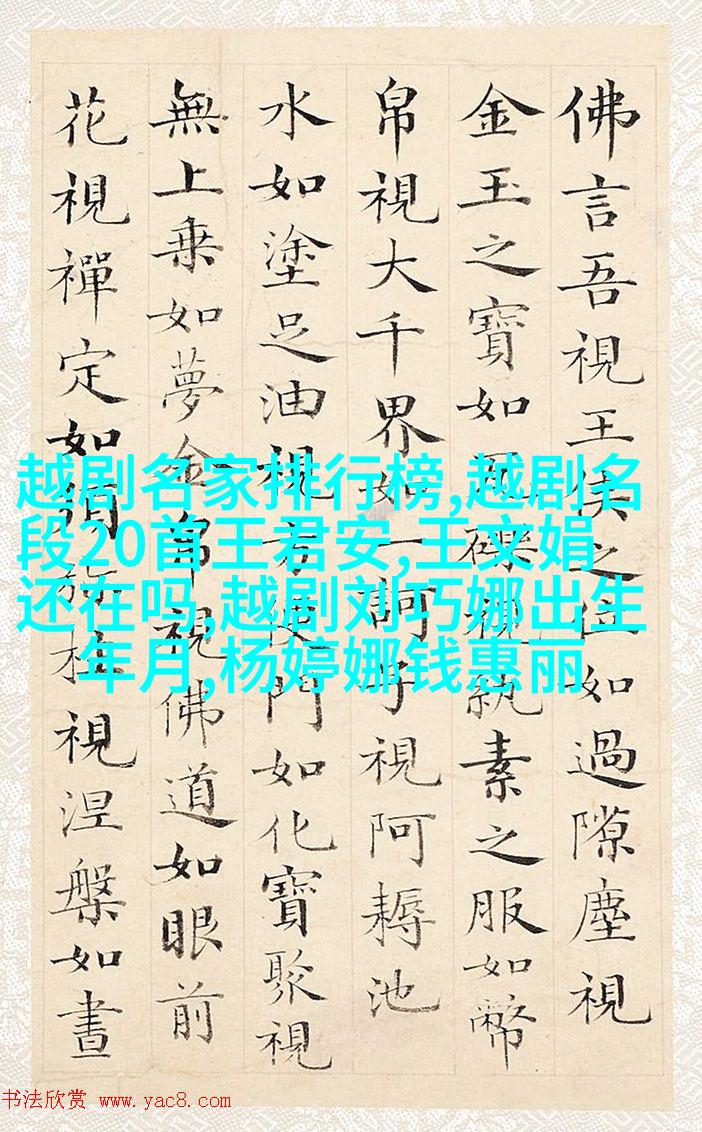 佛言吾視王侯之位如過隙塵視
金玉之寶如瓦礫視紈素之服如幣
帛視大千界如一訶子視阿耨池
水如塗足油視方便門如化寶聚視
無上乗如夢金帛視佛道如眼前
花視禪定如須柱視涅槃如晝
越剧名家排行榜,越剧名
段20首王君安,王文娟
还在吗,越剧刘巧娜出生
年月,杨婷娜钱惠丽
书法欣赏 www.yac8.com